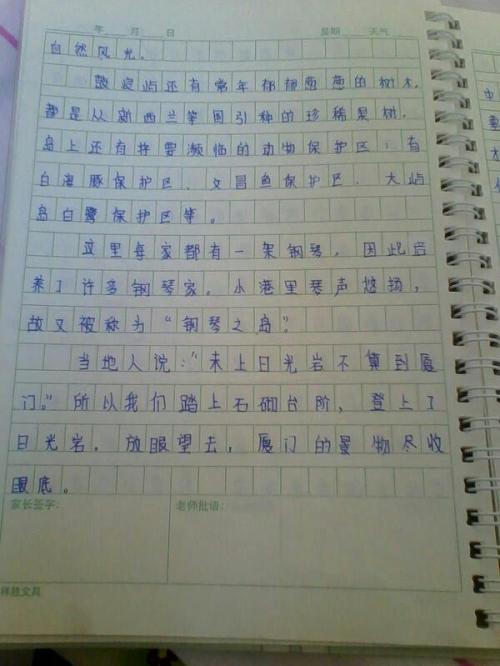 年 月 日 星期 天气
自然风光。
鼓浪屿还有常年郁郁葱葱的树木,
都是从新西兰等国引种的珍稀果树.
岛上还有许要濒临的动物保护区:有
白海豚保护区.文昌鱼保护区.大屿
岛白鹭保护区等。
这里每家都有一架钢琴,因此后
养了许多钢琴家.小港里琴声悠扬,
故又被称为“钢琴之岛”.
当地人说:“未上日光岩不算到厦
门。”所以我们踏上石砌台阶,登上了
日光岩,放眼望去,厦门的景物尽收
眼底。
家长签字: 老师批语:
祥慈文具